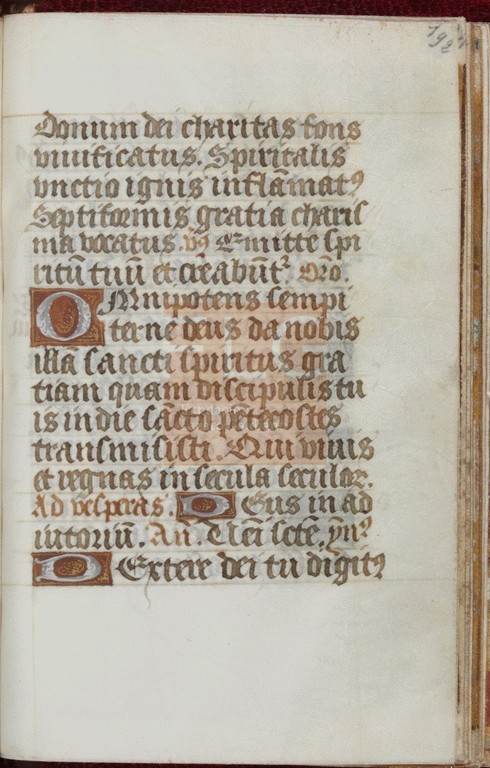 192
Donum dei charitas fons
viuificatus. Spiritalis
vnctio ignis inflāmatꝯ
Septiformis gratia charis
ma vocatus. v̾ꝯ Emitte spi
ritū tuū et creabūtᷣ. Oro.
OMnipotens sempi
terne deus da nobis
illā sancti spiritus gra
tiam quam discipulis tu
is in die sācto pētecostes
transmisisti. Qui viuis
et regnas in secula seculoꝝ.
Ad vesperas. Deus in ad
iutoriū. An. Ueni scte. ymꝯ
Dextere dei tu digitꝯ